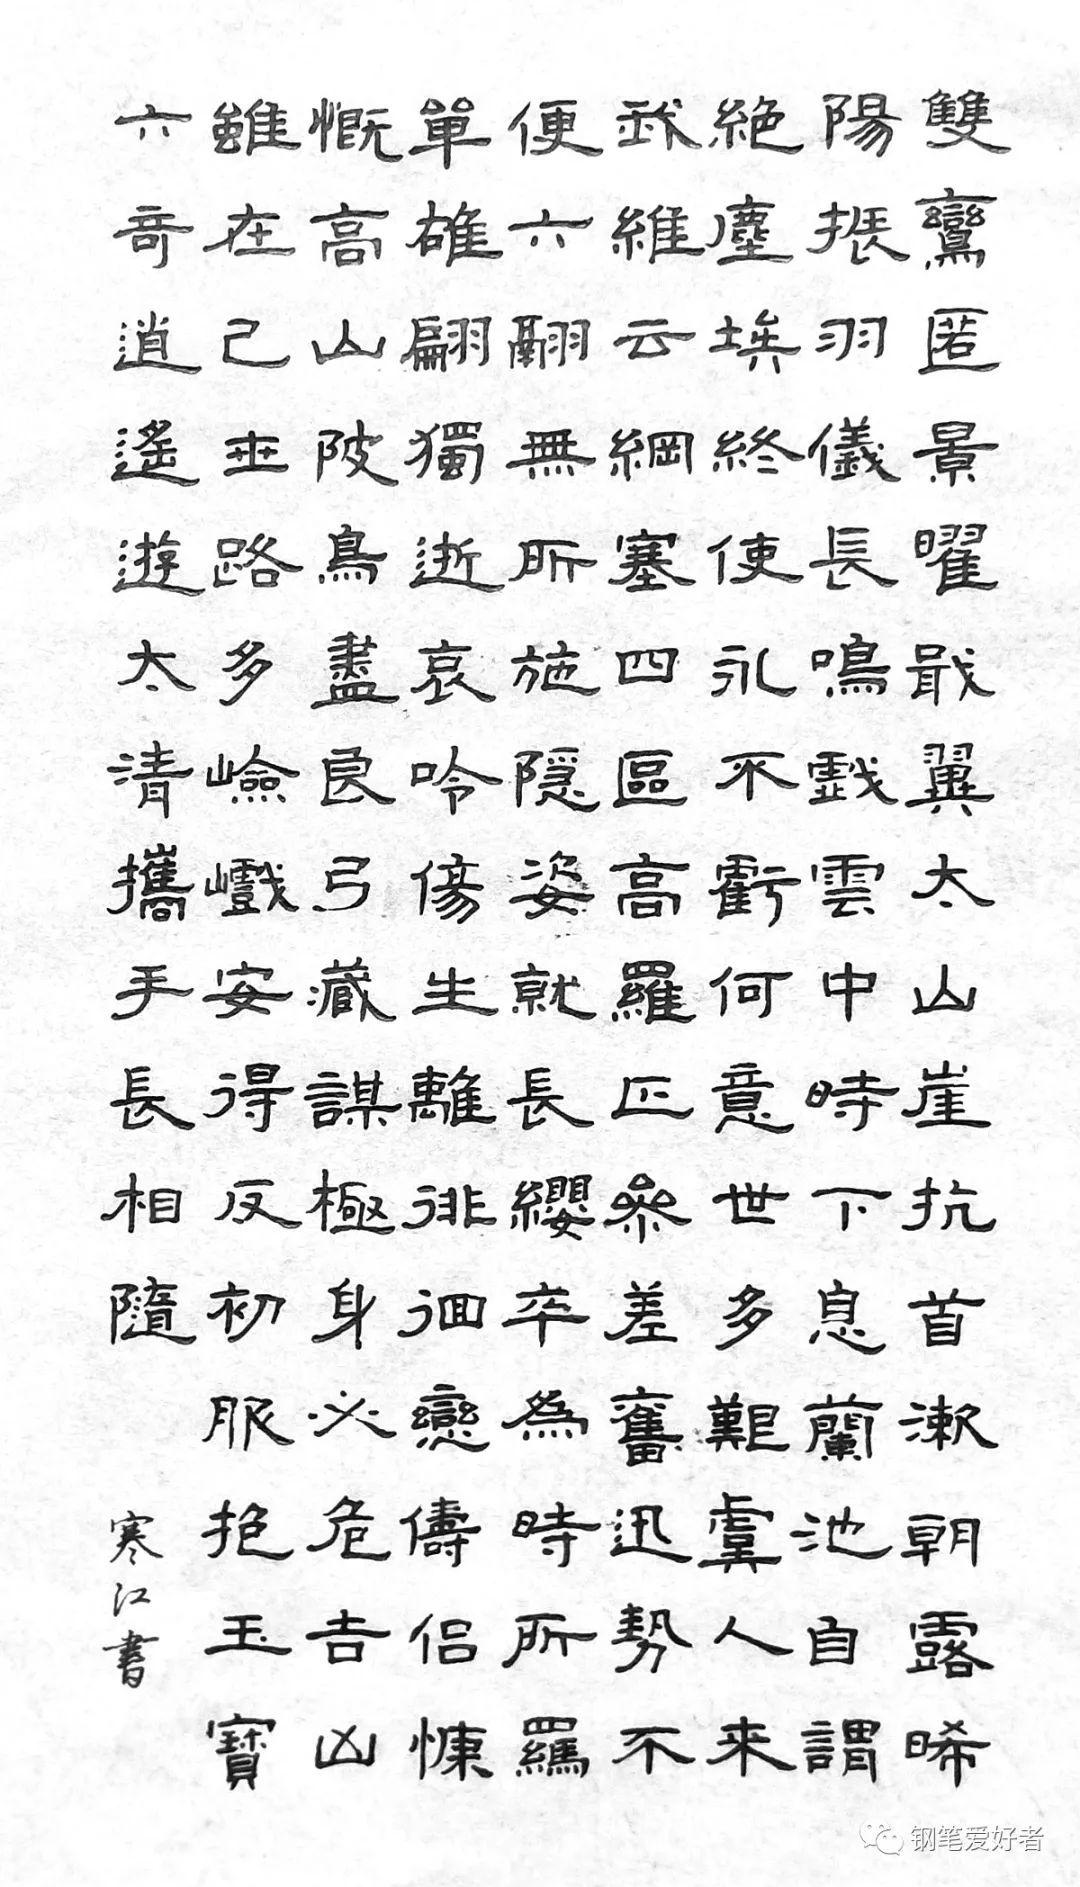 雙鸞匿景曜戢翼太山崖抗首漱朝露晞
陽振羽儀長鳴戲雲中時下息蘭池自謂
絶塵埃終使永不虧何意世多艱虞人来
我維云綱塞四區高羅正參差奮迅勢不
便六翮無所施隱姿就長纓卒為時所羈
單雄翩獨逝哀吟傷生離徘徊戀儔侶慷
慨高山陂鳥盡良弓藏謀極身必危吉凶
雖在己世路多嶮巇安得反初服抱玉寶
六奇逍遙遊太清攜手長相隨
寒江書
钢笔爱好者